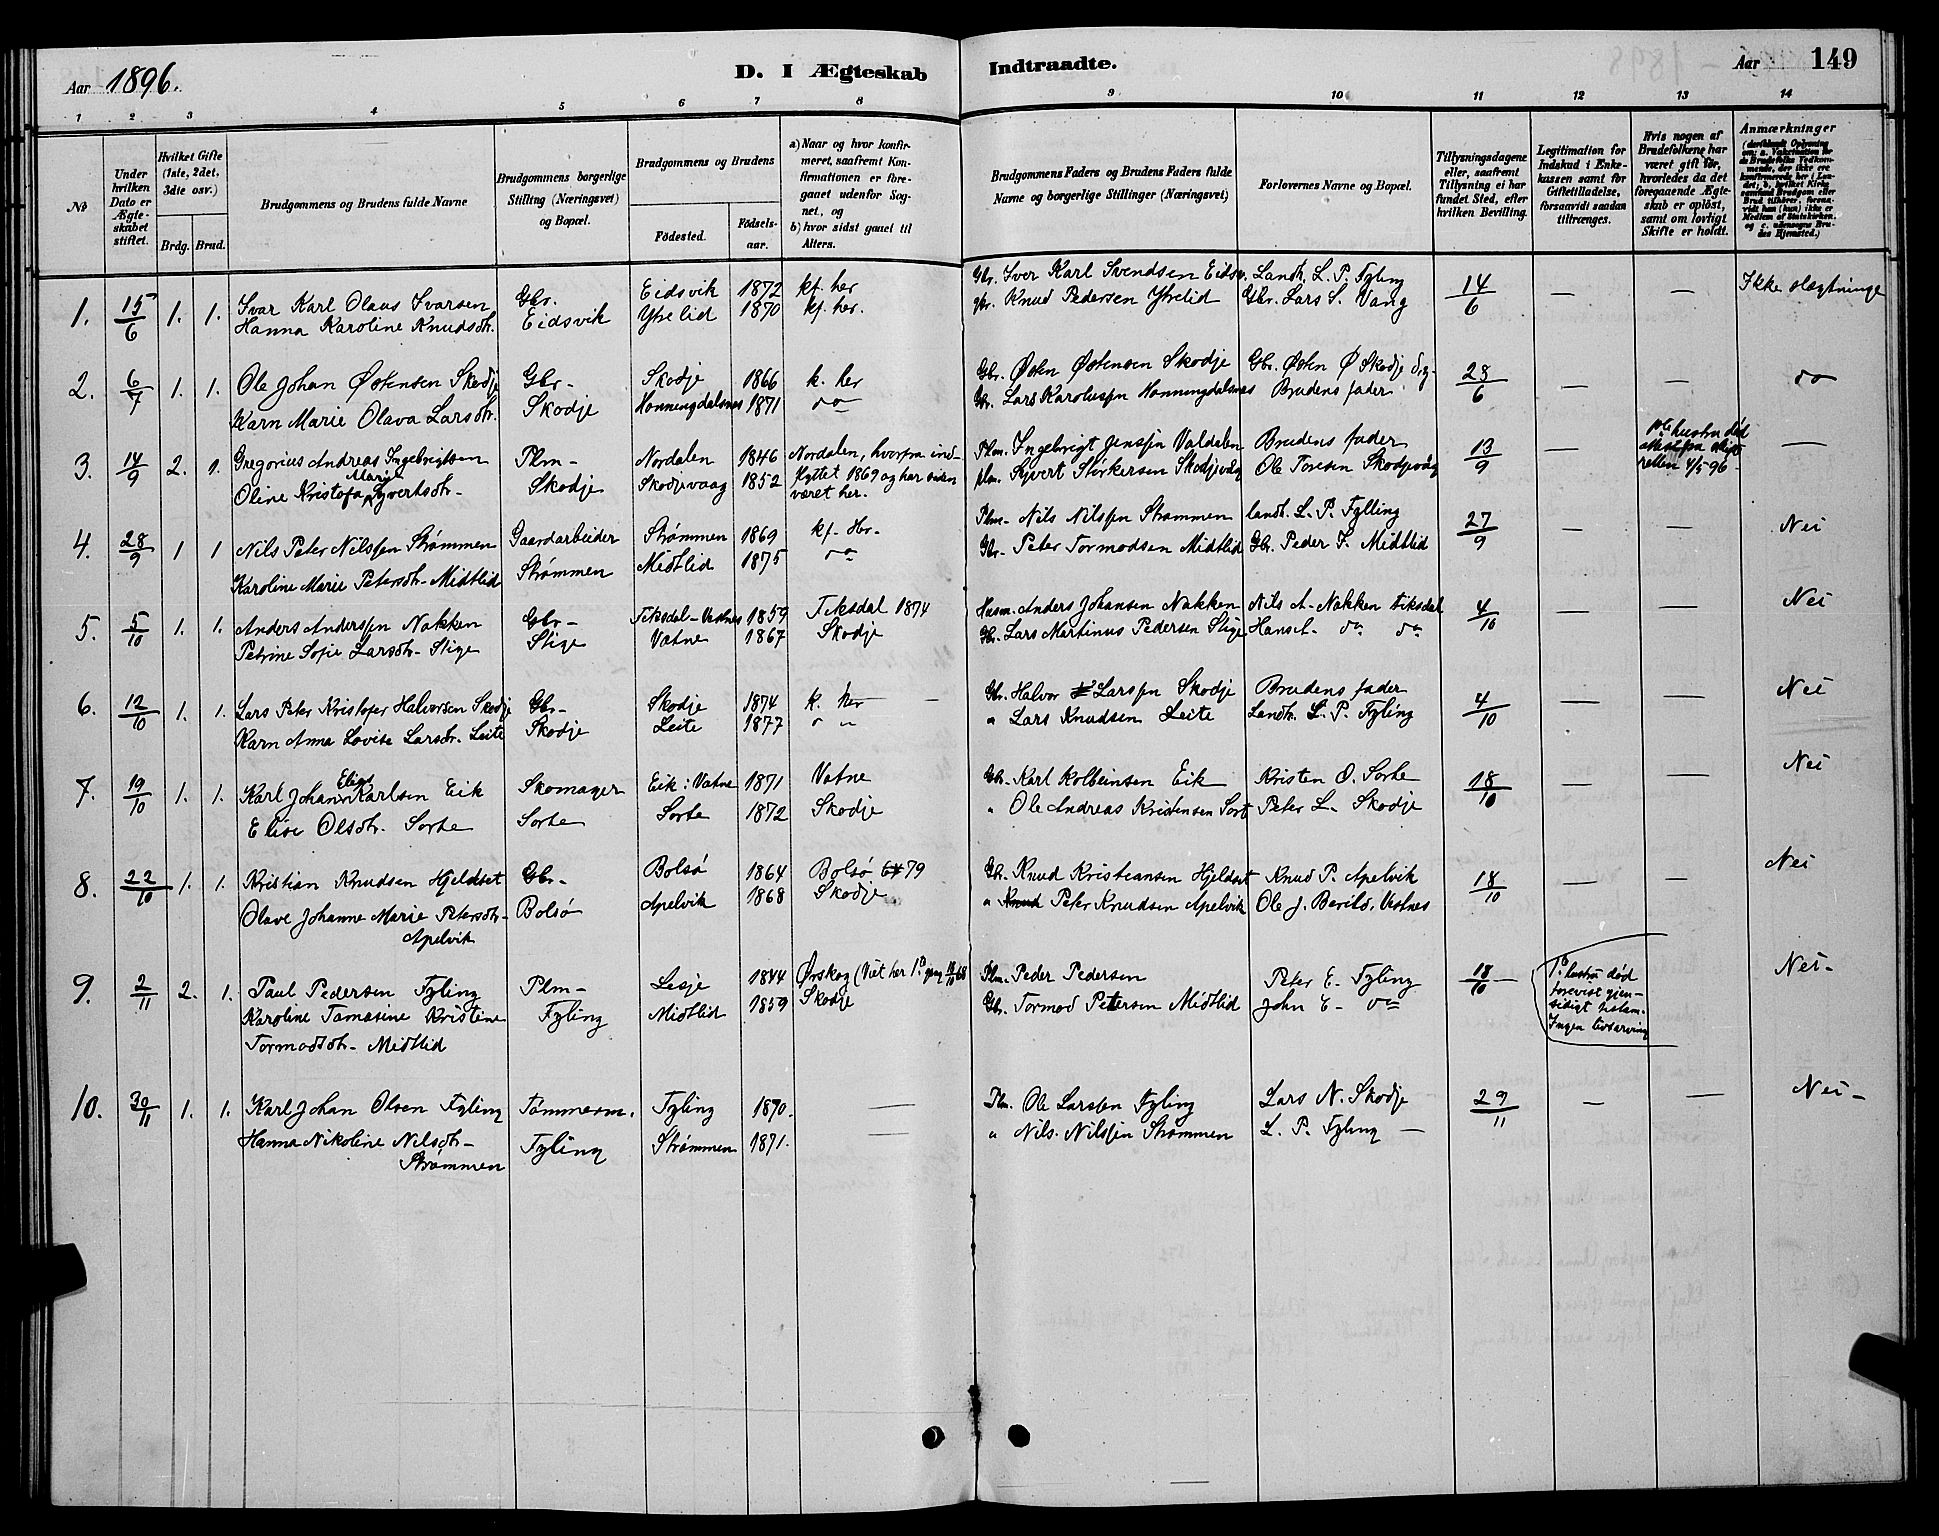 Aar 1896.
D. I Ægteskab Indtraadte.
Aar 149
1 2 3 4 5 6 7 8 9 10 11 12 13 14
No
Under hvilken Dato er Ægteskabet stiftet.
Hvilket Gifte (1ste, 2det, 3dte osv.)
Brdg. Brud.
Brudgommens og Brudens fulde Navne
Brudgommens borgerlige Stilling (Næringsvei) og Bopæl.
Brudgommens og Brudens
Fødested. Fødselsaar.
a) Naar og hvor konfirmeret, saafremt Konfirmationen er foregaaet udenfor Sognet, og
b) hvor sidst gaaet til Alters.
Brudgommens Faders og Brudens Faders fulde Navne og borgerlige Stillinger (Næringsvei)
Forlovernes Navne og Bopæl.
Tillysningsdagene eller, saafremt Tillysning ei har fundet Sted, efter hvilken Bevilling.
Legitimation for Indskud i Enkekassen samt for Giftetilladelse, forsaavidt saadan tiltrænges.
Hvis nogen af Brudefolkene har været gift før, hvorledes da det foregaaende Ægteskab er opløst, samt om lovligt Skifte er holdt.
Anmærkninger
1. 15/6 1. 1. Ivar Karl Olaus Ivarsen Gbr. Eidsvik 1872 kf. her Gbr. Iver Karl Svendsen Eidsv. Landh. L. P. Fyling 14/6 — — Ikke slægtninge
Hanna Karoline Knudsdtr. Eidsvik Ytrelid 1870 kf. her. Gbr. Knud Pedersen Ytrelid Gbr. Lars S. Vang
2. 6/7 1. 1. Ole Johan Østensen Skodje Gbr- Skodje 1866 k. her Gbr. Østen Østensen Skodje Gbr. Østen Ø Skodje 28/6 — — do
Karn Marie Olava Larsdtr. Skodje Honningdalsnes 1871 do Gbr. Lars Karolussen Honningdalsnes Brudens fader
3. 14/9 2. 1. Gregorius Andreas Ingebrigtsen Plm- Nordalen 1846 Nordalen, hvorfra indflyttet 1869 og har siden været her. Plm. Ingebrigt Jensen Valdalen Brudens fader 13/9 — hustru død attest fra skifteretten 4/5 96 —
Oline Kristofa Marie Syvertsdtr- Skodje Skodjevaag 1852 Plm. Syvert Stirkersen Skodjevåg Ole Toresen Skodjevåg
4. 28/9 1 1 Nils Peter Nilssen Strømmen Gaardarbeider Strømmen 1869 kf. Hr- Plm- Nils Nilssen Strømmen landh. L. P. Fylling 27/9 — — Nei
Karoline Marie Petersdtr- Midtlid Strømmen Midtlid 1875 do Gbr- Peter Tormodsen Midtlid Gbr. Peder T. Midtlid
5. 5/10 1. 1. Anders Anderssen Nakken Gbr- Tiksdal-Vestnes 1859 Tiksdal 1874 Husm. Anders Johansen Nakken Nils A- Nakken Tiksdal 4/10 — — Nei
Petrine Sofie Larsdtr- Stige Stige Vatne 1867 Skodje Gbr. Lars Martinus Pedersen Stige Hans A- do do
6. 12/10 1. 1. Lars Peter Kristofer Halvorsen Skodje Gbr- Skodje 1874 k. her Gbr. Halvor Larssen Skodje Brudens fader 4/10 — — Nei
Karn Anna Lovise Larsdtr. Leite Skodje Leite 1877 do " Lars Knudsen Leite Landh. L. P. Fyling
7. 19/10 1. 1. Karl Johan Elias Karlsen Eik Skomager Eik i Vatne 1871 Vatne Gbr- Karl Kolbeinsen Eik Kristen O. Sorte 18/10 — — Nei
Elise Olsdtr. Sorte Sorte Sorte 1872 Skodje " Ole Andreas Kristensen Sort Peter L. Skodje
8. 22/10 1. 1. Kristian Knudsen Hjeldset Gbr- Bolsø 1864 Bolsø 64 79 Gbr. Knud Kristiansen Hjeldset Knud P. Apelvik 18/10 — — Nei
Olave Johanne Marie Petersdtr- Apelvik Bolsø Apelvik 1868 Skodje " Knud Peter Knudsen Apelvik Ole J. Berild, Vestnes
9. 2/11 2. 1. Paul Pedersen Fyling Plm- Lesje 1844 Ørskog (Viet her 1. gang 68 Plm. Peder Pedersen Peter E. Fyling 18/10 — hustru død forevist gjensidigt testam. Ingen livsarving Nei-
Karoline Tomasine Kristine Tormodsdtr- Midtlid Fyling Midtlid 1859 Skodje Gbr. Tormod Petersen Midtlid John E- do
10. 30/11 1. 1. Karl Johan Olsen Fyling Tømmerm. Fyling 1870. — Plm. Ole Larssen Fyling Lars N. Skodje 29/11 — — Nei-
Hanna Nikoline Nilsdtr- Strømmen Fyling Strømmen 1871. — " Nils. Nilssen Strømmen L. P. Fyling —